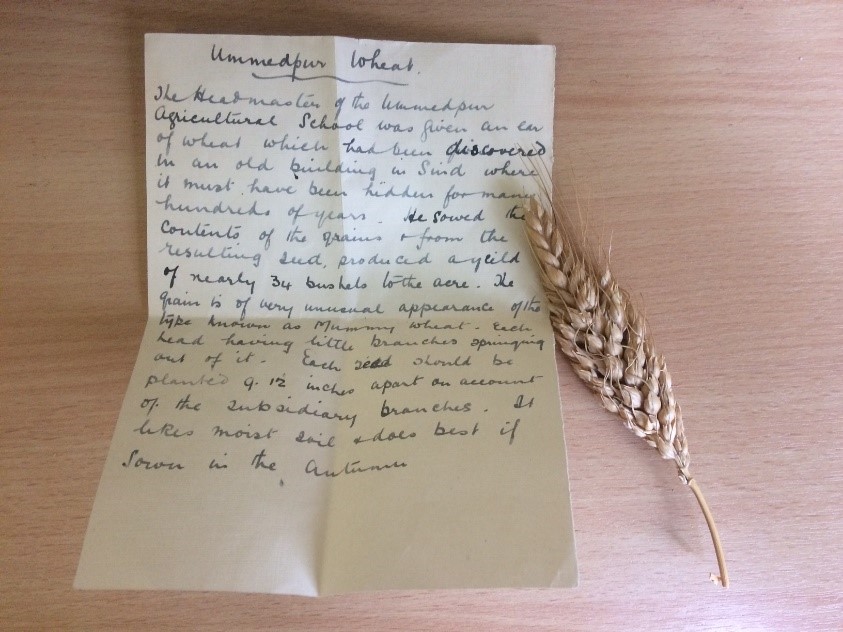 Ummedpur Wheat.
The Headmaster of the Ummedpur
Agricultural School was given an ear
of wheat which had been discovered
in an old building in Sind where
it must have been hidden for many
hundreds of years. He sowed the
contents of the grains & from the
resulting seed, produced a yeild
of nearly 34 bushels to the acre. The
grain is of very unusual appearance of the
type known as Mummy wheat. Each
head having little branches springing
out of it. Each seed should be
planted 9.12 inches apart on account
of the subsidiary branches. It
likes moist soil & does best if
sown in the Autumn